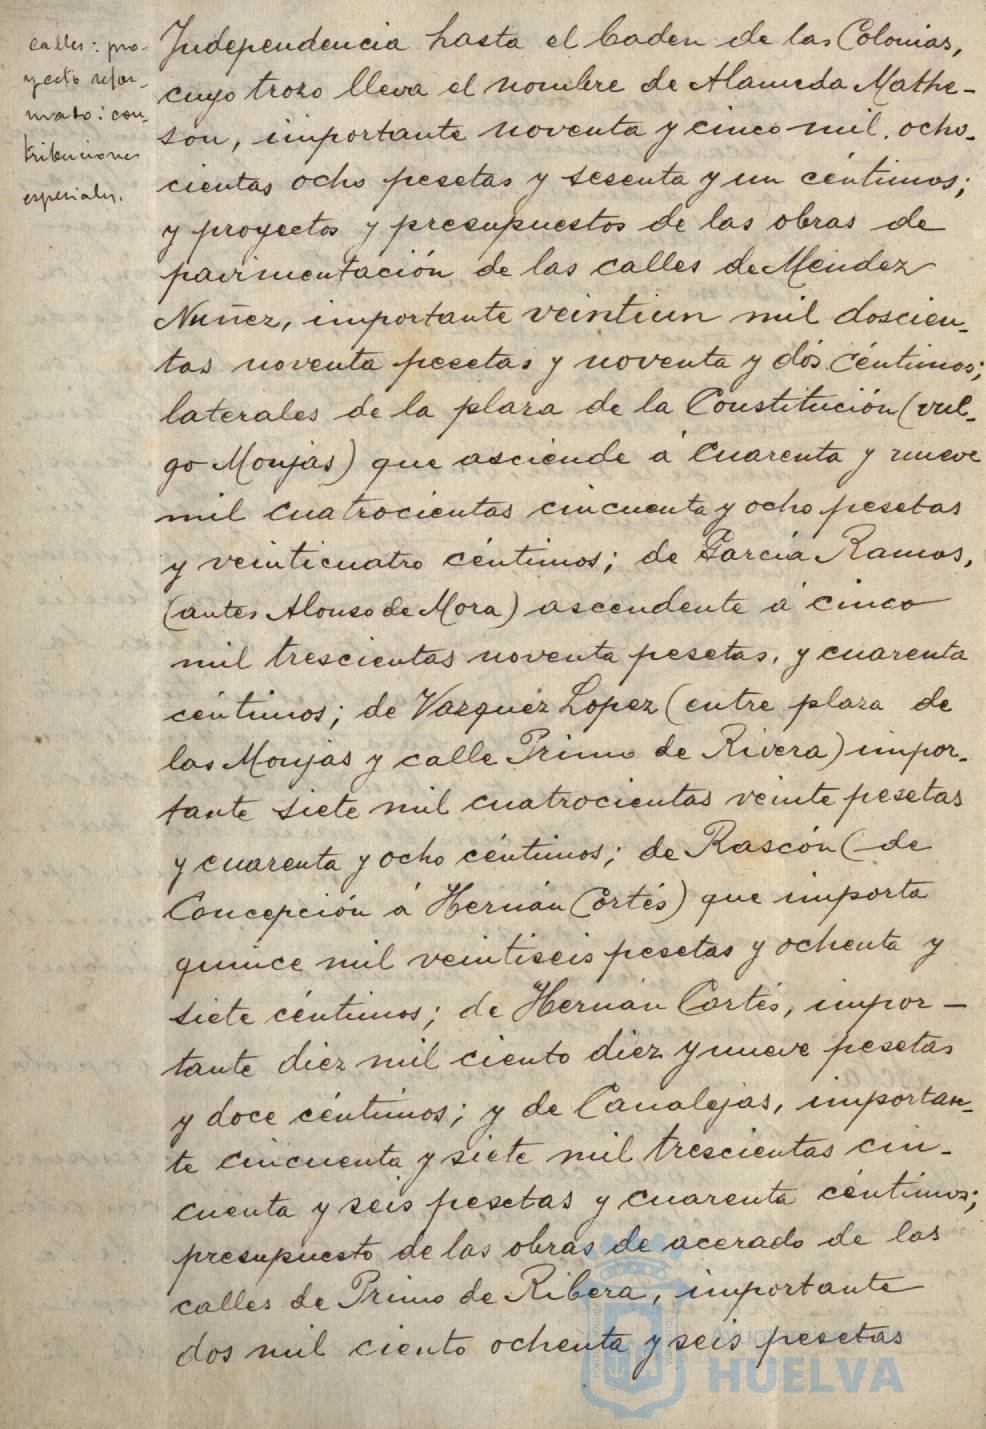 calles: pro-
yecto refor-
mato: con-
tribuciones
especiales.
Independencia hasta el baden de las Colonias,
cuyo trozo lleva el nombre de Alameda Mathe-
son, importante noventa y cinco mil ocho-
cientas ocho pesetas y sesenta y un céntimos;
y proyectos y presupuestos de las obras de
pavimentación de las calles de Mendez
Nuñez, importante veintiun mil doscien-
tas noventa pesetas y noventa y dós céntimos;
laterales de la plaza de la Constitución (vul-
go Monjas) que asciende á cuarenta y nueve
mil cuatrocientas cincuenta y ocho pesetas
y veinticuatro céntimos; de García Ramos,
(antes Alonso de Mora) ascendente á cinco
mil trescientas noventa pesetas, y cuarenta
céntimos; de Vazquez Lopez (entre plaza de
las Monjas y calle Primo de Rivera) impor-
tante siete mil cuatrocientas veinte pesetas
y cuarenta y ocho céntimos; de Rascón (de
Concepción á Hernán Cortés) que importa
quince mil veintiseis pesetas y ochenta y
siete céntimos; de Hernán Cortés, impor-
tante diez mil ciento diez y nueve pesetas
y doce céntimos; y de Canalejas, importan-
te cincuenta y siete mil trescientas cin-
cuenta y seis pesetas y cuarenta céntimos;
presupuesto de las obras de acerado de las
calles de Primo de Ribera, importante
dos mil ciento ochenta y seis pesetas
HUELVA